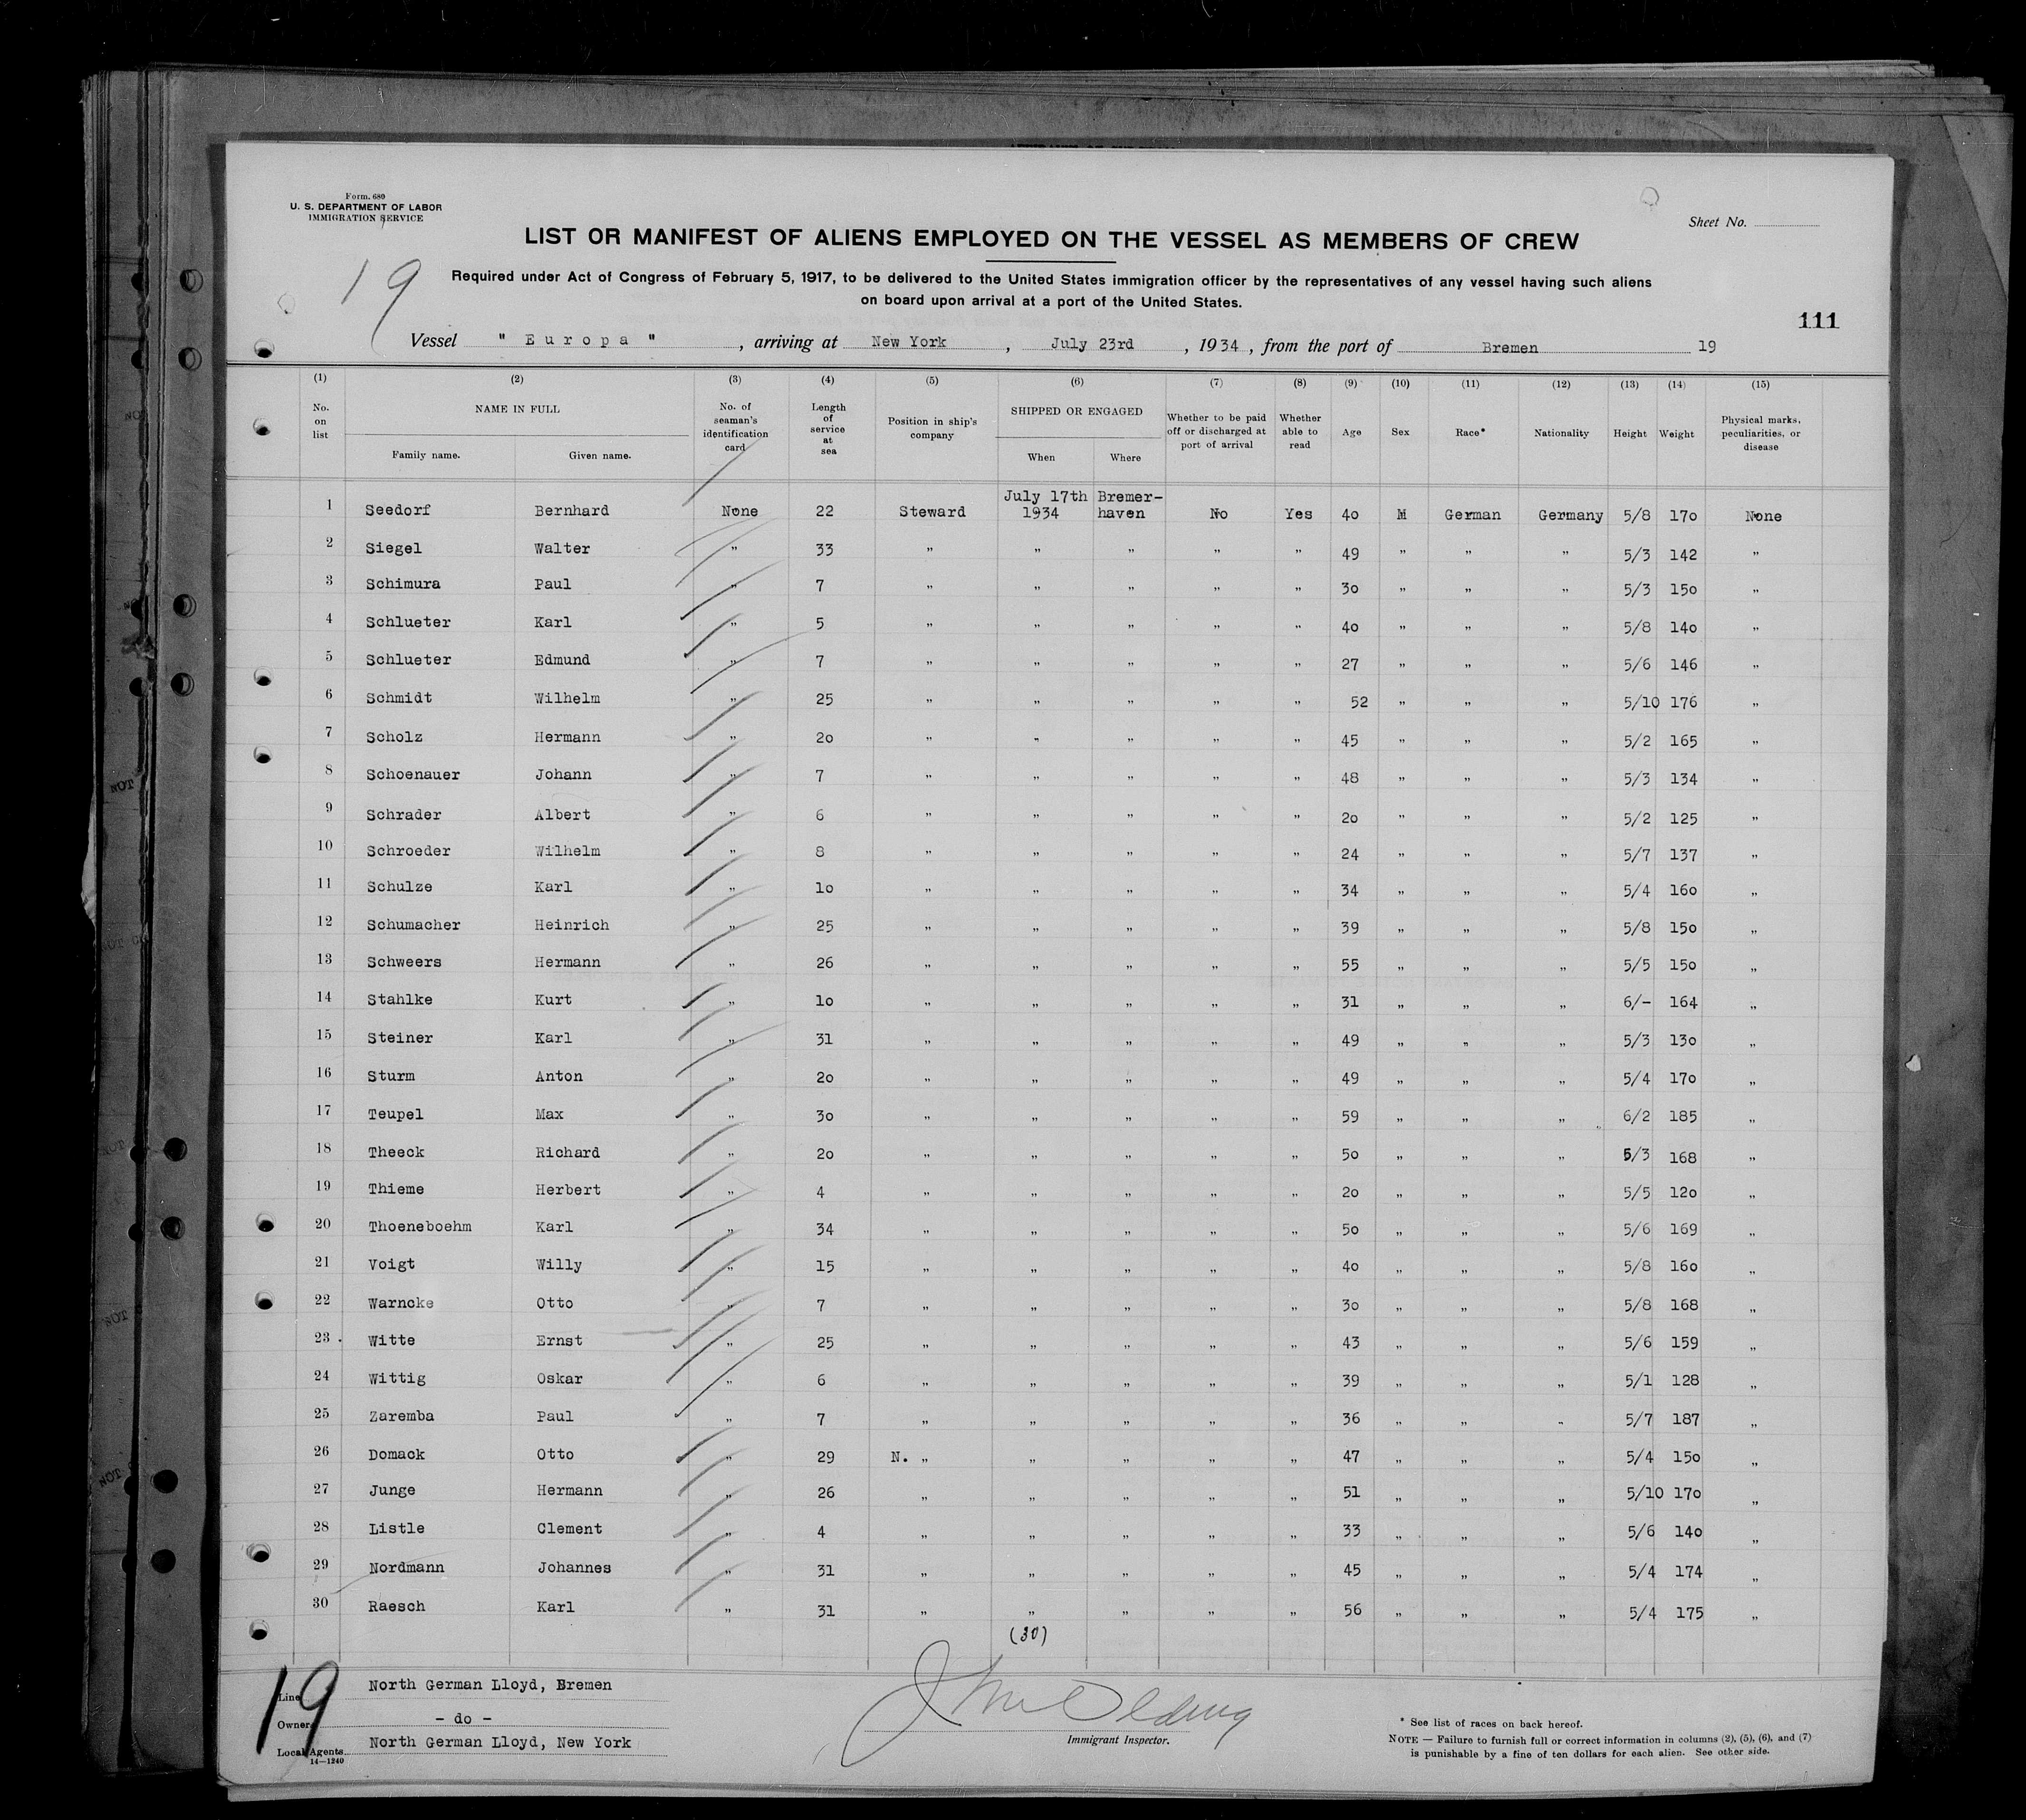 Form. 680
U. S. DEPARTMENT OF LABOR
IMMIGRATION SERVICE
Sheet No.
LIST OR MANIFEST OF ALIENS EMPLOYED ON THE VESSEL AS MEMBERS OF CREW
19
Required under Act of Congress of February 5, 1917, to be delivered to the United States immigration officer by the representatives of any vessel having such aliens
on board upon arrival at a port of the United States.
111
Vessel " Europa " , arriving at New York , July 23rd , 1934 , from the port of Bremen 19
(1) (2) (3) (4) (5) (6) (7) (8) (9) (10) (11) (12) (13) (14) (15)
No. on list NAME IN FULL Family name. Given name. No. of seaman's identification card Length of service at sea Position in ship's company SHIPPED OR ENGAGED When Where Whether to be paid off or discharged at port of arrival Whether able to read Age Sex Race* Nationality Height Weight Physical marks, peculiarities, or disease
1 Seedorf Bernhard None 22 Steward July 17th 1934 Bremer-haven No Yes 40 M German Germany 5/8 170 None
2 Siegel Walter " 33 " " " " " 49 " " " 5/3 142 "
3 Schimura Paul " 7 " " " " " 30 " " " 5/3 150 "
4 Schlueter Karl " 5 " " " " " 40 " " " 5/8 140 "
5 Schlueter Edmund " 7 " " " " " 27 " " " 5/6 146 "
6 Schmidt Wilhelm " 25 " " " " " 52 " " " 5/10 176 "
7 Scholz Hermann " 20 " " " " " 45 " " " 5/2 165 "
8 Schoenauer Johann " 7 " " " " " 48 " " " 5/3 134 "
9 Schrader Albert " 6 " " " " " 20 " " " 5/2 125 "
10 Schroeder Wilhelm " 8 " " " " " 24 " " " 5/7 137 "
11 Schulze Karl " 10 " " " " " 34 " " " 5/4 160 "
12 Schumacher Heinrich " 25 " " " " " 39 " " " 5/8 150 "
13 Schweers Hermann " 26 " " " " " 55 " " " 5/5 150 "
14 Stahlke Kurt " 10 " " " " " 31 " " " 6/- 164 "
15 Steiner Karl " 31 " " " " " 49 " " " 5/3 130 "
16 Sturm Anton " 20 " " " " " 49 " " " 5/4 170 "
17 Teupel Max " 30 " " " " " 59 " " " 6/2 185 "
18 Theeck Richard " 20 " " " " " 50 " " " 5/3 168 "
19 Thieme Herbert " 4 " " " " " 20 " " " 5/5 120 "
20 Thoeneboehm Karl " 34 " " " " " 50 " " " 5/6 169 "
21 Voigt Willy " 15 " " " " " 40 " " " 5/8 160 "
22 Warncke Otto " 7 " " " " " 30 " " " 5/8 168 "
23 Witte Ernst " 25 " " " " " 43 " " " 5/6 159 "
24 Wittig Oskar " 6 " " " " " 39 " " " 5/1 128 "
25 Zaremba Paul " 7 " " " " " 36 " " " 5/7 187 "
26 Domack Otto " 29 N. " " " " " 47 " " " 5/4 150 "
27 Junge Hermann " 26 " " " " " 51 " " " 5/10 170 "
28 Listle Clement " 4 " " " " " 33 " " " 5/6 140 "
29 Nordmann Johannes " 31 " " " " " 45 " " " 5/4 174 "
30 Raesch Karl " 31 " " " " " 56 " " " 5/4 175 "
(30)
19
Line North German Lloyd, Bremen
Owner - do -
Local Agents North German Lloyd, New York
14—1240
Immigrant Inspector.
* See list of races on back hereof.
NOTE — Failure to furnish full or correct information in columns (2), (5), (6), and (7)
is punishable by a fine of ten dollars for each alien. See other side.